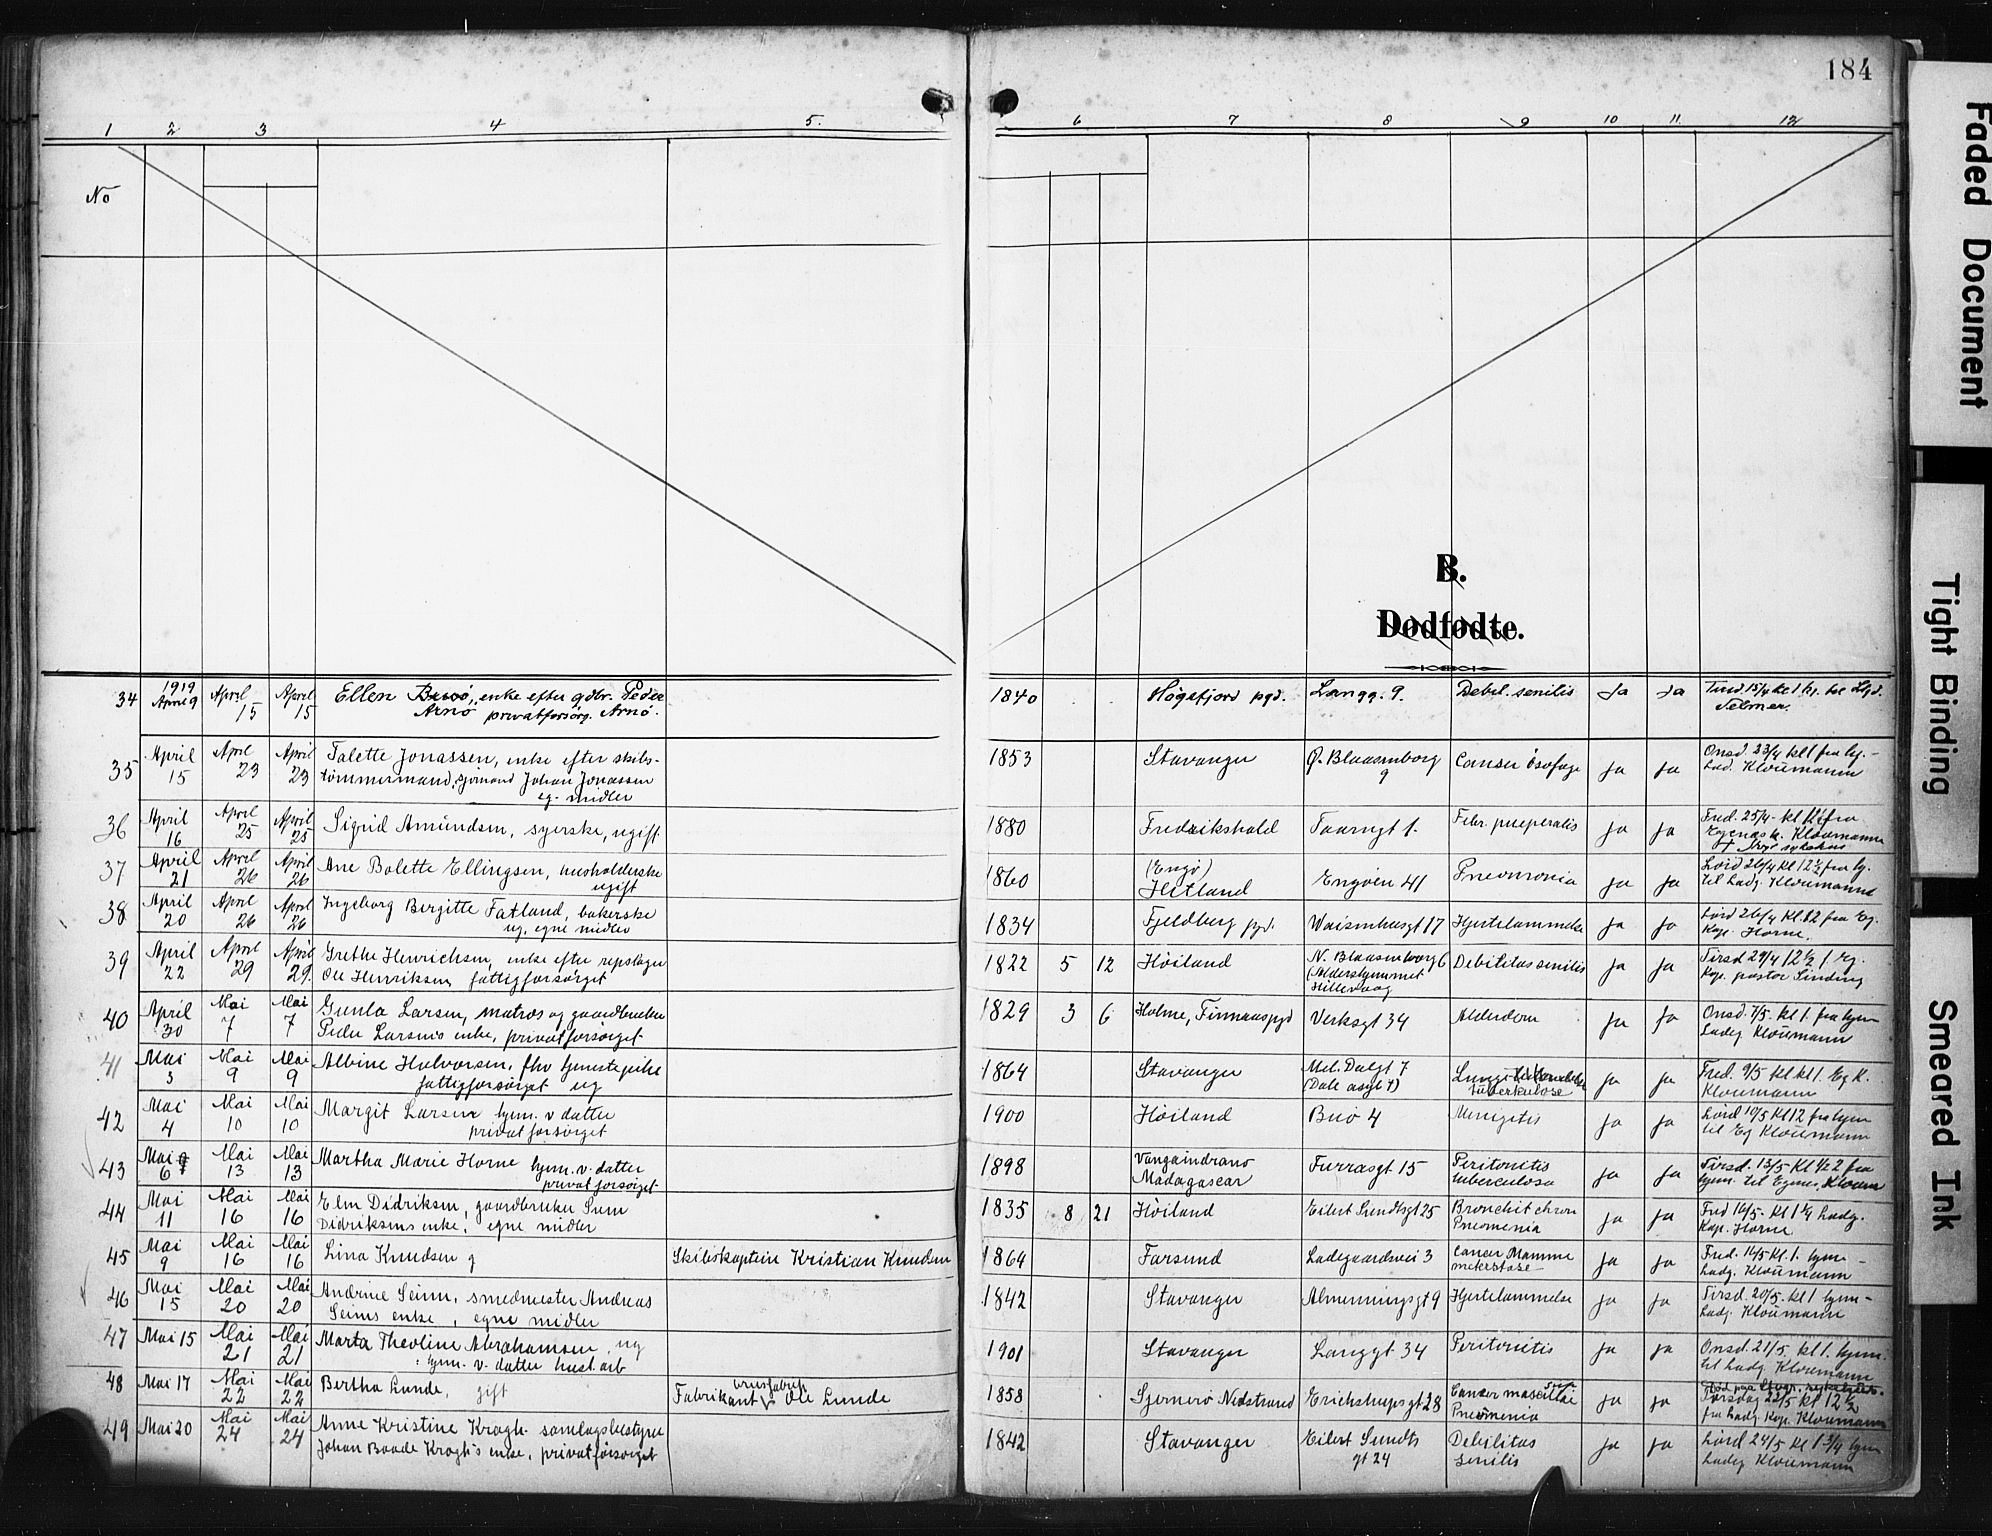 184
1 2 3 4 5.
6 7 8 9 10 11 12
No
B.
Dødfødte.
34 1919 April 9 April 15 April 15 Ellen Buø, enke efter gdbr. Peder
Arnø privatforsørg. Arnø.
1840 Høgsfjord pgd. Langg. 9. Debil. senilis Ja Ja Tirsd. 15/4 kl 1
Selmer.
35 April 15 April 23 April 23 Talette Jonassen, enke efter skibs-
tømmermand, Johan Jonassen
eg. midler
1853 Stavanger Ø. Blaasenborg 9 Cancer øsofage ja ja Onsd. 23/4 kl 1 fra hj. -
Lad. Kloumann
36 April 16 April 25 April 25 Sigrid Amundsen, syerske, ugift
1880 Fredrikshald Taarngt 1. Febr. pueperalis ja ja Fred. 25/4 kl fra
Egenæs k. Kloumann
sykehus
37 April 21 April 26 April 26 Ane Bolette Ellingsen, husholderske
ugift
1860 (Engø)
Hetland Engøen 41 Pneomonia ja ja Lørd 26/4 kl 12½ fra hj.
til Ladg. Kloumann
38 April 20 April 26 April 26 Ingeborg Birgitte Fatland, bakerske
ug. egne midler
1834 Fjeldberg pgd. Waisenhusgt 17 Hjertelammelse ja ja Lørd 26/4 kl. 12 fra Eg.
Kap. Horne.
39 April 22 April 29 April 29. Grethe Henrichsen, enke efter repslager
Ole Henriksen, fattigforsørget
1822 5 12 Høiland N. Blaasenborg 6
(Aldershjemmet
Hillevaag Debilitas senilis ja ja Tirsd 29/4 12½ f. Eg.
Kap. pastor Sinding
40 April 30 Mai 7 Mai 7 Gunla Larsen, matros og gaardbruker
Peder Larsens enke, privatforsørget
1829 3 6 Holme, Finnaaspgd Verksgt 34 Alderdom ja ja Onsd. 7/5. kl 1. fra hjem
Ladeg Kloumann
41 Mai 3 Mai 9 Mai 9 Albine Halvorsen, fhv tjenestepike
fattigforsørget ug
1864 Stavanger Mel. Dalgt 7
(Dale asyl 7) Lunge
tuberkulose ja ja Fred. 9/5 kl kl 1. Eg K.
Kloumann
42 Mai 4 Mai 10 Mai 10 Margit Larsen hjem. v datter
privatforsørget
1900 Høiland Buø 4 Menigetis ja ja Lørd 10/5 kl 12 fra hjem
til Eg Kloumann
43 Mai 6 Mai 13 Mai 13 Martha Marie Horne hjem. v. datter
privatforsørget
1898 Vangaindrano
Madagascar Furrasgt 15 Peritonitis
tuberculosa ja ja Tirsd. 13/5 kl ½ 2 fra
hjem. til Egenes. Kloum
44 Mai 11 Mai 16 Mai 16 Elen Didriksen, gaardbruker Sven
Didriksens enke, egne midler
1835 8 21 Høiland Eilert Sundtsgt 25 Bronchit chron
Pneomenia ja ja Fred 16/5. kl 1 ¼ Ladg.
Kap. Horne
45 Mai 9 Mai 16 Mai 16 Lina Knudsen g Skibskaptein Kristian Knudsen
1864 Farsund Ladegaardsvei 3 Cancer Mamme
metastase ja ja Fred. 16/5 kl. 1. hjem -
Ladg. Kloumann
46 Mai 15 Mai 20 Mai 20 Andrine Seim, smedmester Andreas
Seims enke, egne midler
1842 Stavanger Almenningsgt 9 Hjertelammelse ja ja Tirsd. 20/5. kl 1 hjem -
Ladg. Kloumann
47 Mai 15 Mai 21 Mai 21 Marta Theoline Abrahamsen, ug
hjem. v. datter husl arb
1901 Stavanger Langgt 34 Peritonitis ja ja Onsd. 21/5. kl 1. hjem.
til Ladg. Kloumann
48 Mai 17 Mai 22 Mai 22 Bertha Lunde, gift Fabrikant Ole Lunde
1858 Sjernerø Nedstrand Erichstrupsgt 28 Cancer maxillae sup
Pneomenia ja ja død paa Stvgr. sykehus.
Torsdag 22/5 kl 12½
fra Ladg. Kap. Kloumann
49 Mai 20 Mai 24 Mai 24 Anne Kristine Kragh. samlagsbestyrer
Johan Baade Kragh's enke, privatforsørget
1842 Stavanger Eilert Sundts
gt 24 Debilitas
senilis ja ja Lørd 24/5 kl 1 3/4 hjem
Ladeg Kloumann
Faded Document
Tight Binding
Smeared Ink